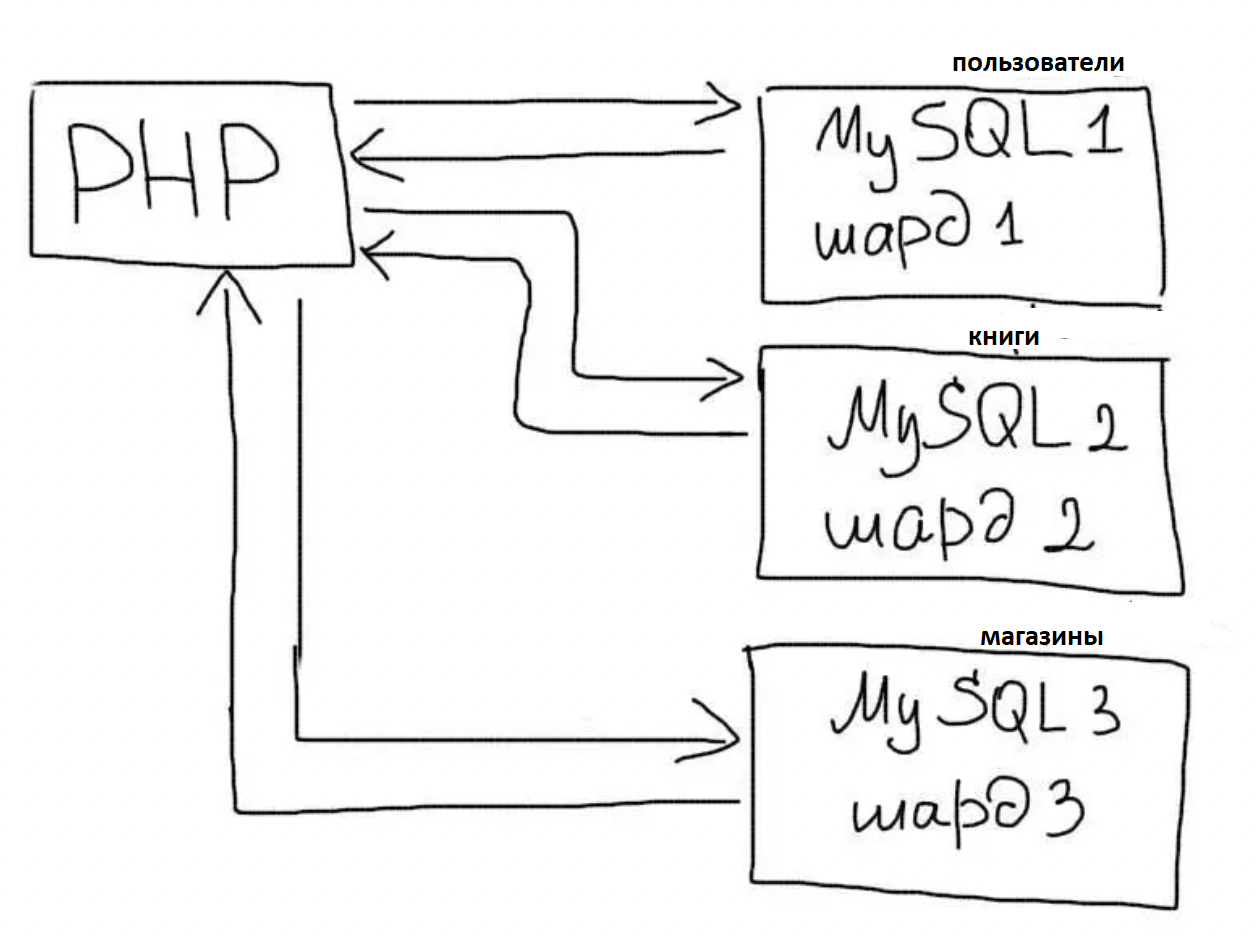 PHP
пользователи
MySQL 1
шард 1
книги
MySQL 2
шард 2
магазины
MySQL 3
шард 3